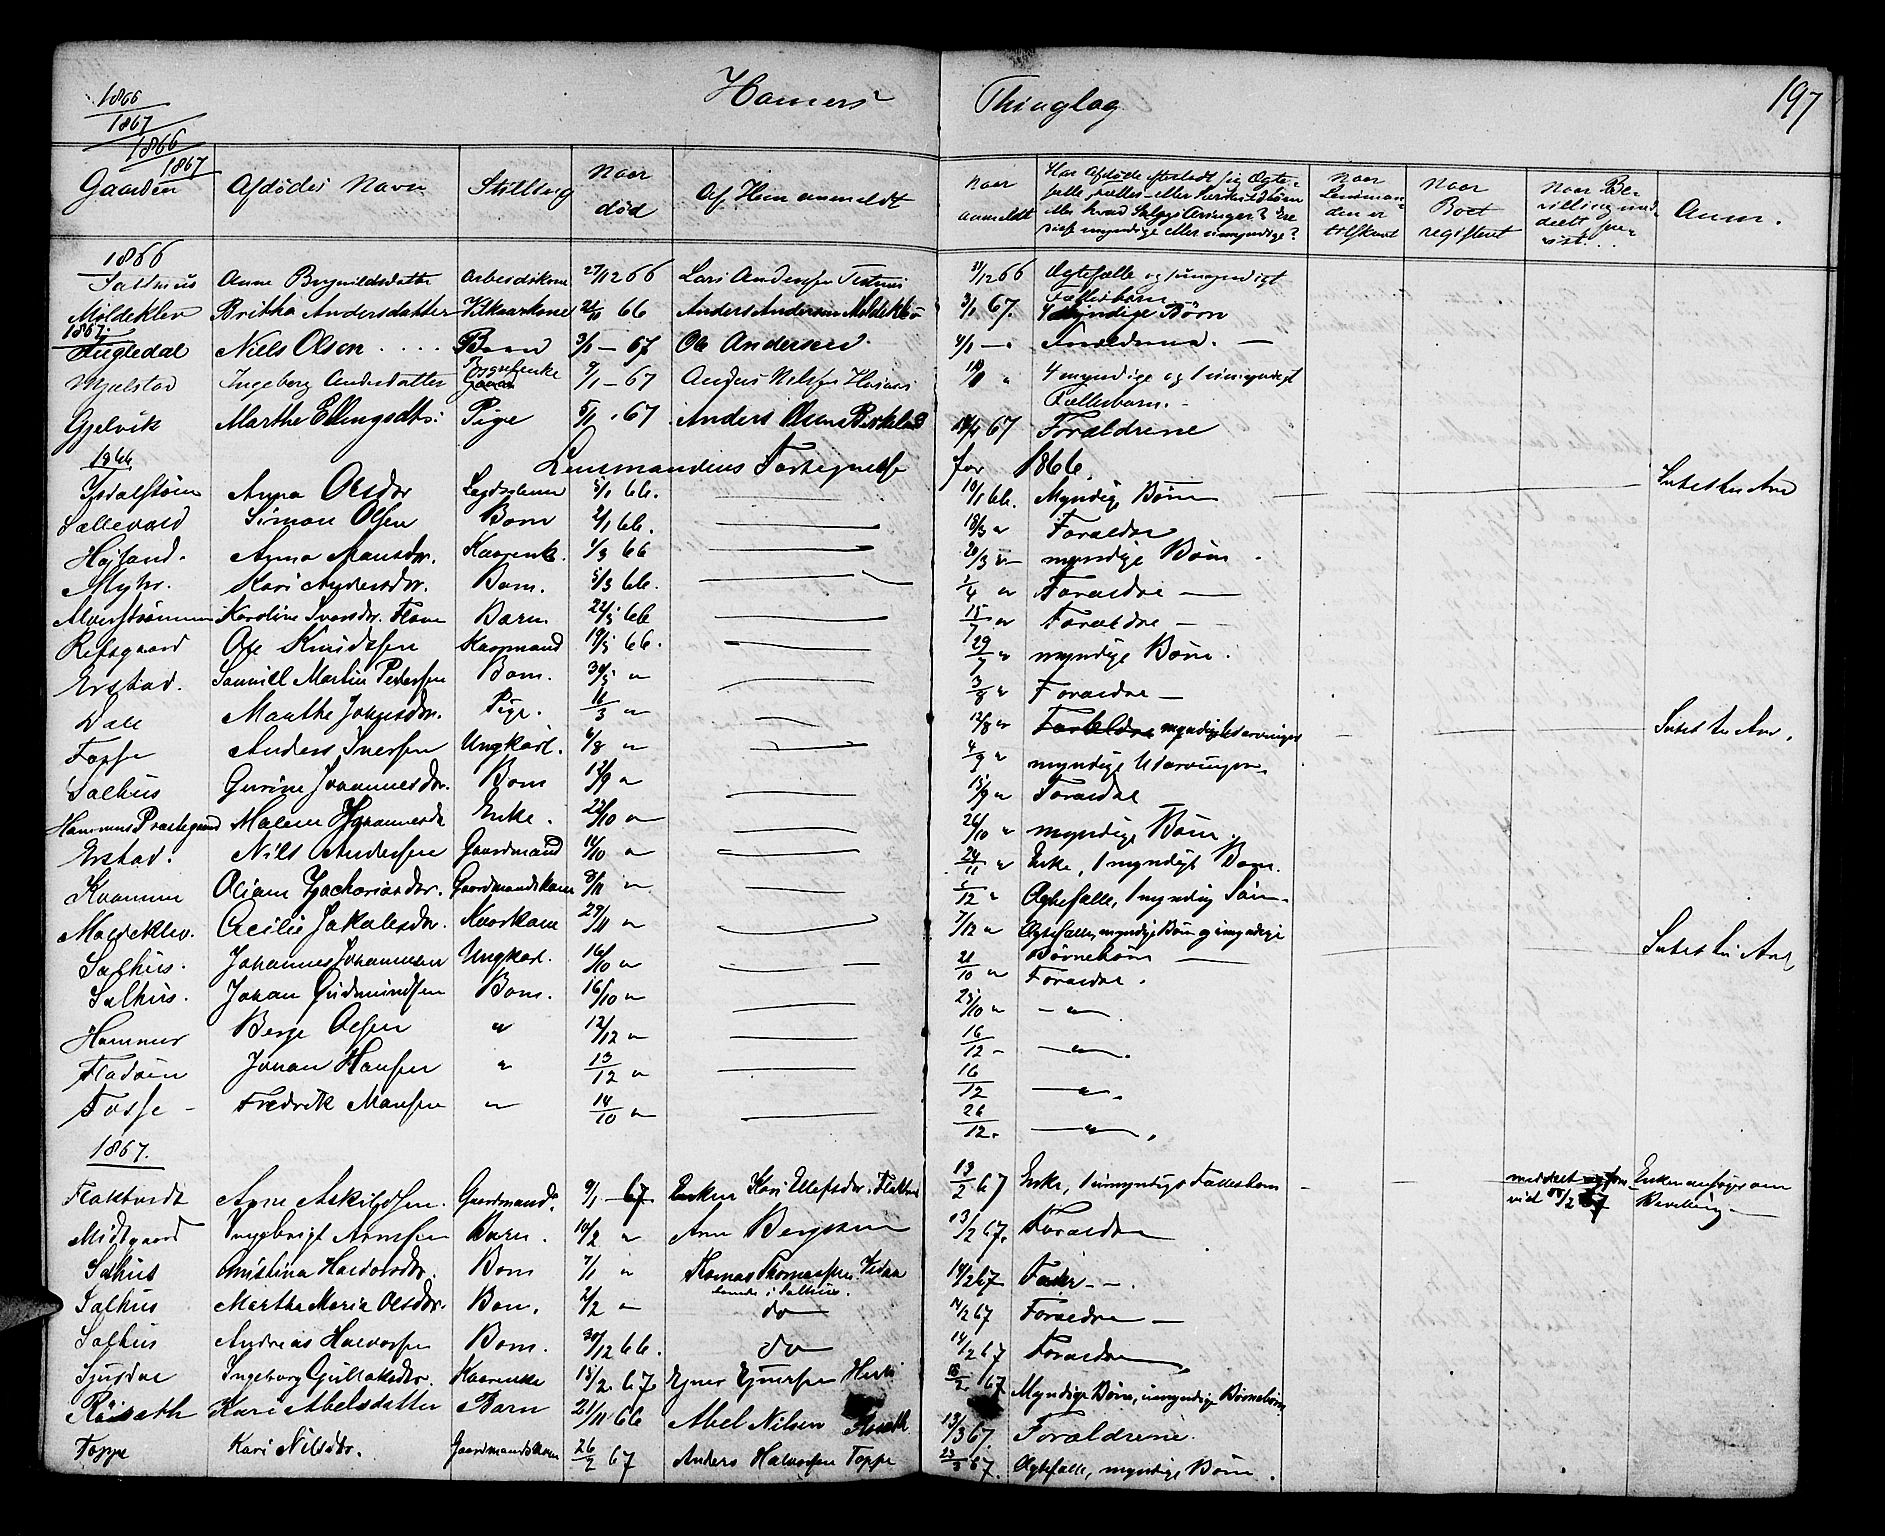 1866
1867
1866
1867
Hamers Thinglag 197
Gaarden Afdødes Navn Stilling Naar død Af Hvem anmeldt Naar anmeldt Har Afdøde efterladt sig Ægtefælle, Fælles- eller Særkuldsbørn eller hvad Slags Arvinger? Ere disse myndige eller umyndige? Naar Lensmanden er tilskrevet Naar Boet registeret Naar Bevilling meddeelt, forevist Anm.
1866
Salthuus Anne Brynildsdatter Arbeidskone 27/12 66 Lars Andersen 31/12 66 Ægtefælle og 1 umyndigt Fællesbarn
Moldeklev Britha Andersdatter Vilkaarskone 21/10 66 Anders Andersen Moldeklev 3/1 67. 4 myndige Børn
1867.
Hugledal Niels Olsen Barn 3/1 - 67 Ole Andersen 4/1 - Forældrene. -
Mjelstad Ingeborg Andersdatter 9/1 - 67 4 myndige og 1 umyndigt Fællesbarn. -
Gjelvik Marthe Ellingsdtr: Pige 5/1 . 67 Anders Olsen Birkeland 67 Forældrene
1866 Lensmandens Fortegnelse for 1866.
Isdalstøen Anna Olsdr Lægdslem 5/1 66. 10/1 66. Myndige Børn Intet til Arv
Sællevold Simon Olsen Barn 2/1 66. 18/3 " Forældre
Højland. Anna Monsdr. Kaarenk. 1/3 66 20/3 " - myndige Børn.
Myhr. Kari Andersdr. Barn. 5/3 66. 1/4 " Forældre -
Alverstrømmen Karoline Iversdr. Barn 22/5 66 15/7 " Forældre -
Refsgaard Ole Knudsen Kaarmand 19/5 66. 29/7 " myndige Børn.
Erstad. Samuel Martin Pedersen Barn. 30/5 " 3/8 " Forældre -
Dale Marthe Johnesdr. Pige. 11/3 " 12/8 " Forældre myndige Udarvinger Intet til Arv.
Fosse Anders Iversen Ungkarl. 6/8 " 4/9 " myndige Udarvinger.
Salhus Gurine Johannesdr. Barn 12/9 " 15/9 " Forældre
Hammers Præstegaard Malene Johannesdr Enke. 22/10 " 26/10 " myndige Børn.
Erstad. Nils Andersen Gaardmand 14/10 " 24/11 " Enke, 1 myndigt Barn.
Kvamme Oliane Zachariasdr. Gaardmandskone 8/11 " 1/12 " Ægtefælle, 1 myndig Søn.
Moldeklev. Cecilie Jakobsdr. Kaarkone 29/11 " 7/12 " Ægtefælle, myndige Børn og umyndige Børnebørn Intet til Arv
Salhus. Johannes Johannesen Ungkarl. 16/10 " 21/10 " Forældre.
Salhus. Johan Gudmundsen Barn. 16/10 " 23/10 " - " -
Hammer Berge Olsen " 12/12 " 16/12 - - " -
Fladøen Johan Hansen " 13/12 " 16/12 - " -
Fosse - Fredrik Monsen " 14/10 " 26/12. - " -
1867.
Flaktvedt Arne Askildsen. Gaardmand. 9/1 - 67. Enken Kari Ulefsdr. Flaktvedt 13/2 67 Enke, 1 umyndigt Fællesbarn Enken ansøger om Bevilling -
Midtgaard Ingebrigt Arnesen Barn. 10/2 " Arne Bergesen 13/2 67. Forældre
Salhus Christina Haldorsdr. Barn 7/1 " Thomas Thomassen i Salhus. 14/2 67 Fader -
Salhus Marthe Maria Olsdr. Barn. 2/2 " do 14/2 67 Forældre -
Salhus Andreas Haldorsen Barn. 30/12 66. do 14/2 67 Forældre
Ingeborg Gullaksdr. Kaarenke 15/2. 67. Ejner Ejnersen 67. Myndige Børn, umyndige Børnebørn
Risnæth Kari Abelsdatter Barn 21/11 66 Abel Nilsen 13/3 67. Forældrene.
Toppe Kari Nilsdr. Gaardmandskone 26/2 67 Anders Halvorsen Toppe 23/3 67. Ægtefælle, myndige Børn.